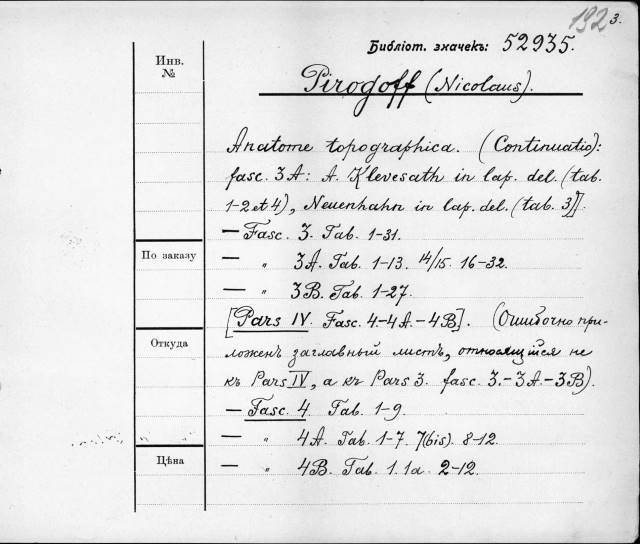 132 3.
Библіот. значекъ: 52935.
Инв. №
Pirogoff (Nicolaus).
Anatome topographica. (Continuatio):
fasc. 3A: A. Klevesath in lap. del. (tab.
1-2 et 4), Neuenhahn in lap. del. (tab. 3)].
— Fasc. 3. Tab. 1-31.
По заказу
— " 3A. Tab. 1-13. 14/15. 16-32.
— " 3B. Tab. 1-27.
[Pars IV. Fasc. 4-4A-4B]. (Ошибочно при-
Откуда
ложенъ заглавный листъ, относящійся не
къ Pars IV, а къ Pars 3. fasc. 3.-3A-3B).
— Fasc. 4. Tab. 1-9.
— " 4A. Tab. 1-7. 7(bis). 8-12.
Цѣна
— " 4B. Tab. 1. 1a. 2-12.